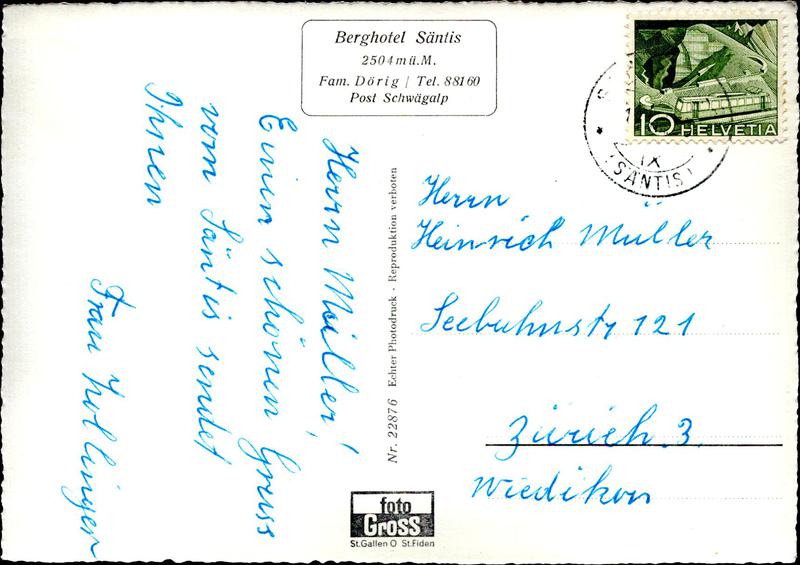 Berghotel Säntis
2504 m ü. M.
Fam. Dörig | Tel. 88160
Post Schwägalp
10 HELVETIA
IX
(SÄNTIS)
Herrn Müller!
Einen schönen Gruss
vom Säntis sendet
Ihnen
Frau Zollinger
Nr. 22876 Echter Photodruck · Reproduktion verboten
Herrn
Heinrich Müller
121
Zürich 3
Wiedikon
foto
Gross
St.Gallen O St.Fiden